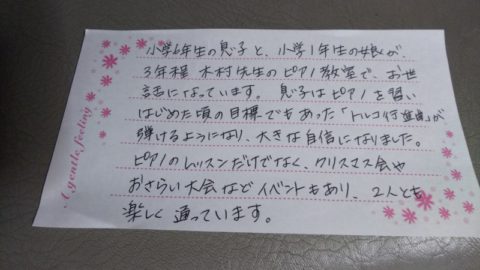 小学6年生の息子と、小学1年生の娘が
3年程 木村先生のピアノ教室で、お世
話になっています。 息子はピアノを習い
はじめた頃の目標でもあった「トルコ行進曲」が
弾けるようになり、大きな自信になりました。
ピアノのレッスンだけでなく、クリスマス会や
おさらい大会などイベントもあり、2人とも
楽しく 通っています。
A gentle feeling